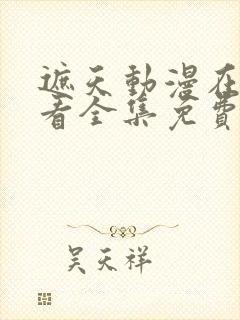 遮天動漫在
看全集免費
吴天祥